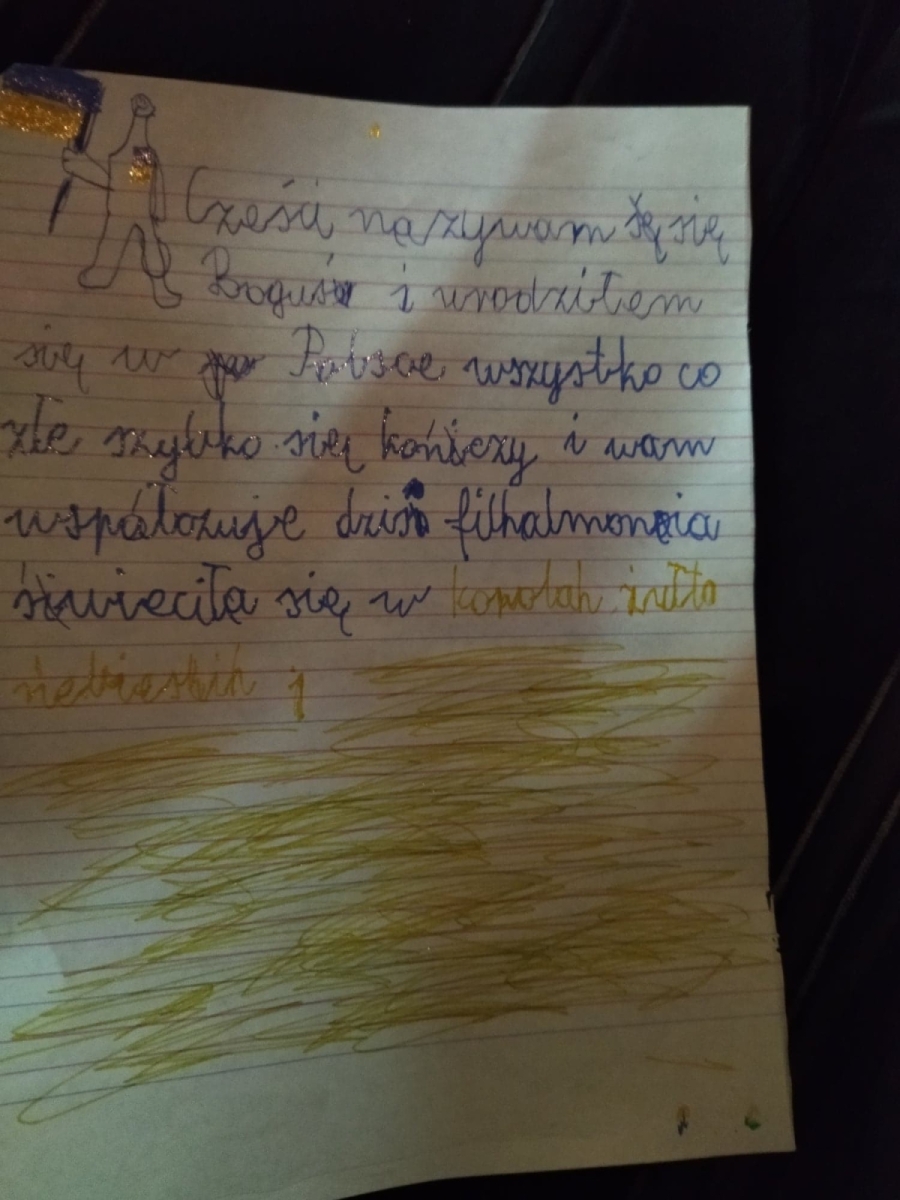 Cześci nazywam się
Boguś i urodziłem
się w Polsce wszystko co
złe szybko się kończy i wam
współczuje dziś filhalmonia
świeciła się w kolah żułto
niebieskih i